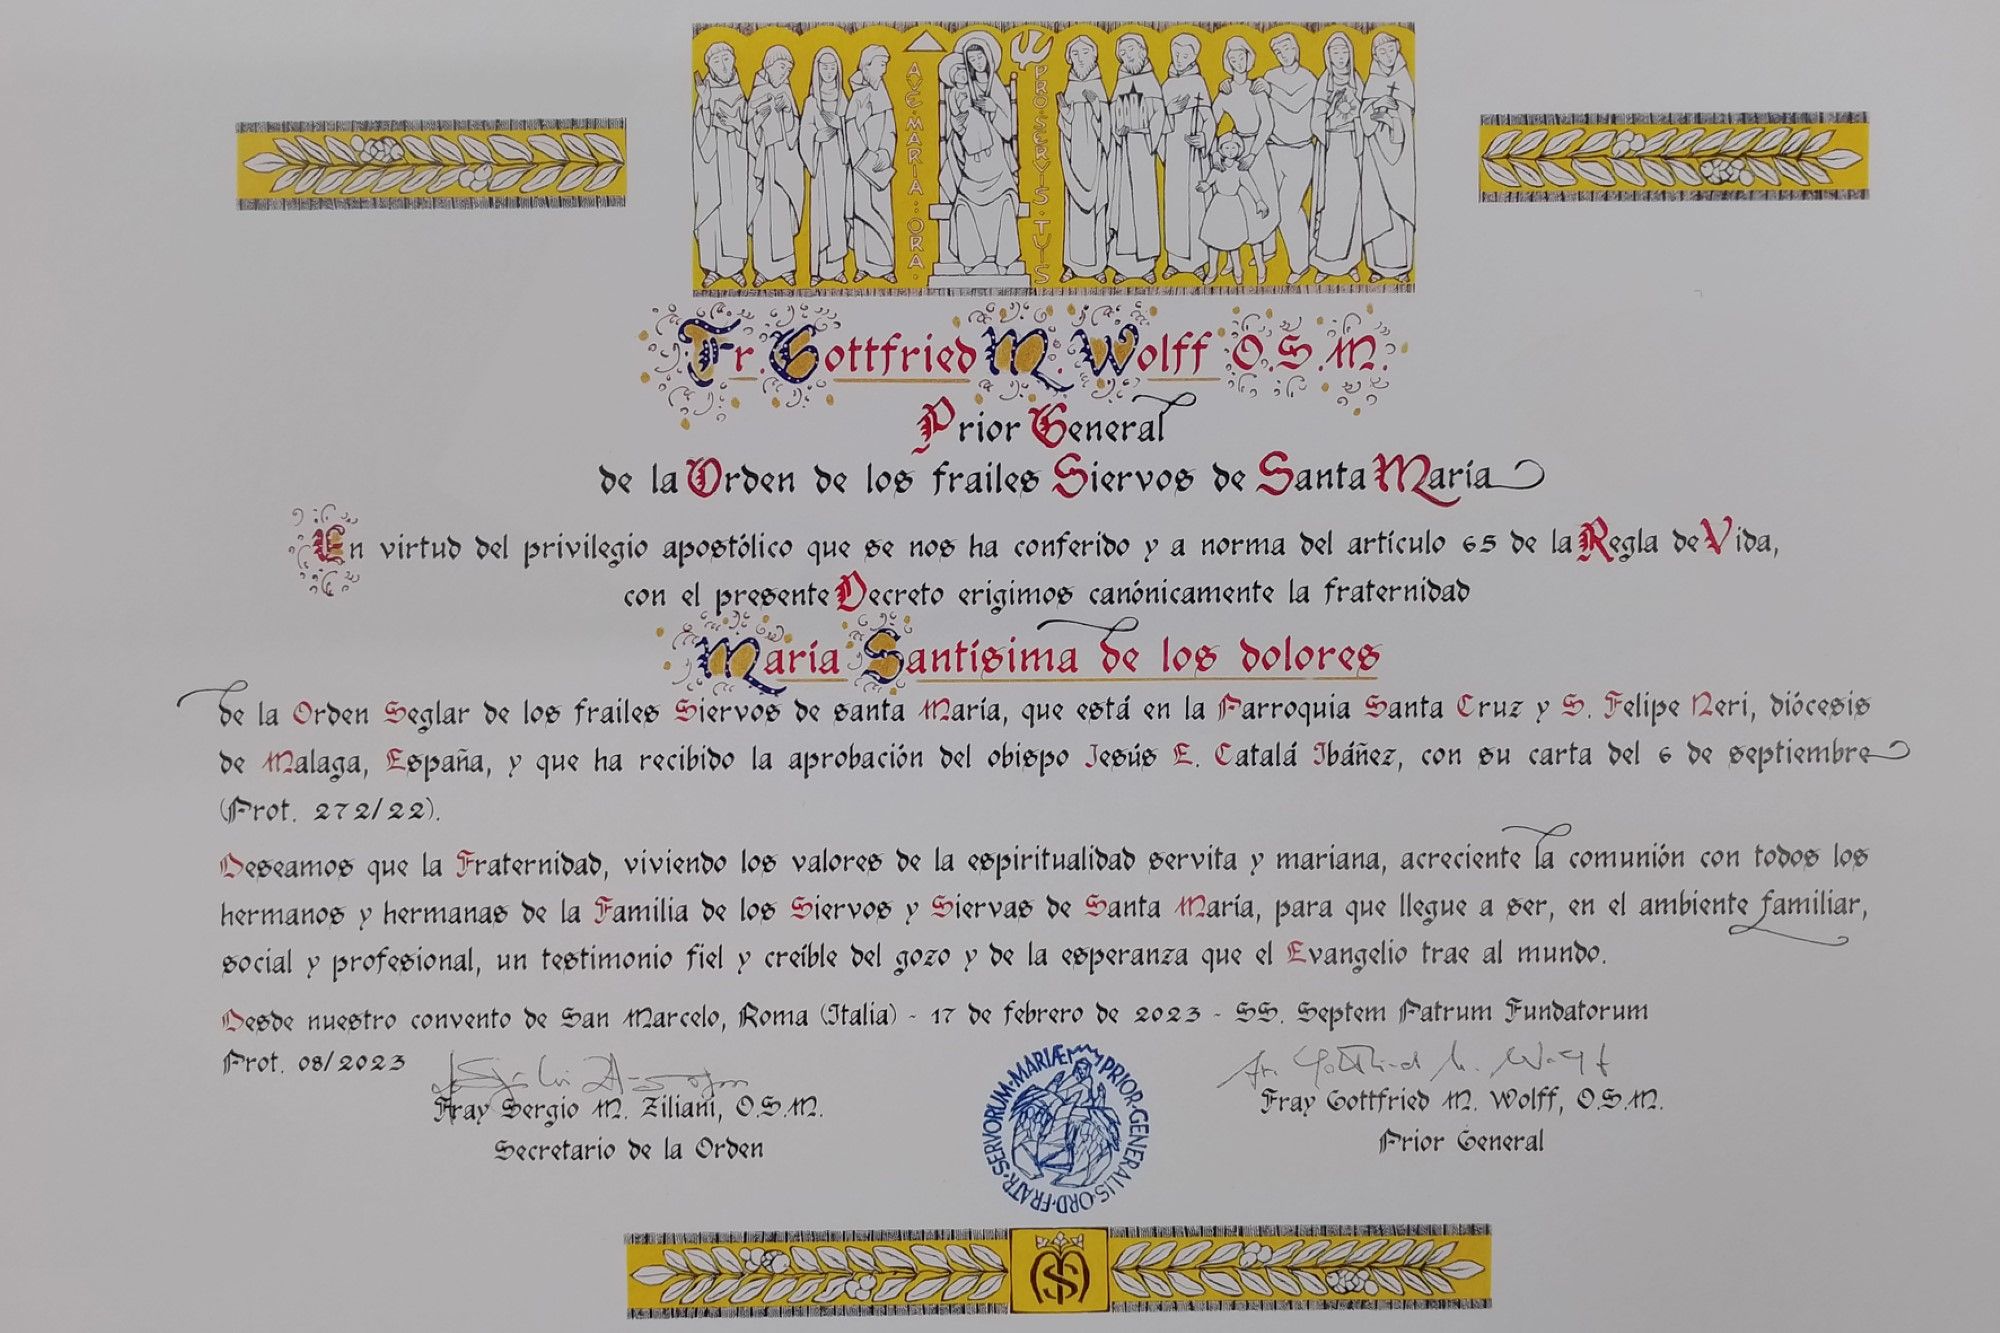 AVE·MARIA:ORA·
PRO·SERVIS·TVIS
Fr. Gottfried M. Wolff O.S.M.
Prior General
de la Orden de los frailes Siervos de Santa María
En virtud del privilegio apostólico que se nos ha conferido y a norma del artículo 65 de la Regla de Vida,
con el presente Decreto erigimos canónicamente la fraternidad
María Santísima de los dolores
de la Orden Seglar de los frailes Siervos de santa María, que está en la Parroquia Santa Cruz y S. Felipe Neri, diócesis
de Malaga, España, y que ha recibido la aprobación del obispo Jesús E. Catalá Ibáñez, con su carta del 6 de septiembre
(Prot. 272/22).
Deseamos que la Fraternidad, viviendo los valores de la espiritualidad servita y mariana, acreciente la comunión con todos los
hermanos y hermanas de la Familia de los Siervos y Siervas de Santa María, para que llegue a ser, en el ambiente familiar,
social y profesional, un testimonio fiel y creíble del gozo y de la esperanza que el Evangelio trae al mundo.
Desde nuestro convento de San Marcelo, Roma (Italia) - 17 de febrero de 2023 - SS. Septem Patrum Fundatorum
Prot. 08/2023
Fray Sergio M. Ziliani, O.S.M.
Secretario de la Orden
PRIOR·GENERALIS·ORD·FRATR·SERVORUM·MARIÆ
Fr. Gottfried M. Wolff
Fray Gottfried M. Wolff, O.S.M.
Prior General